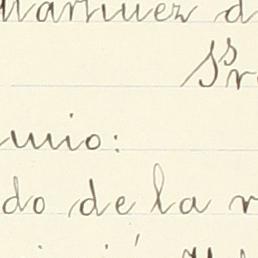 Martinez d
Sr
unio:
do de la r